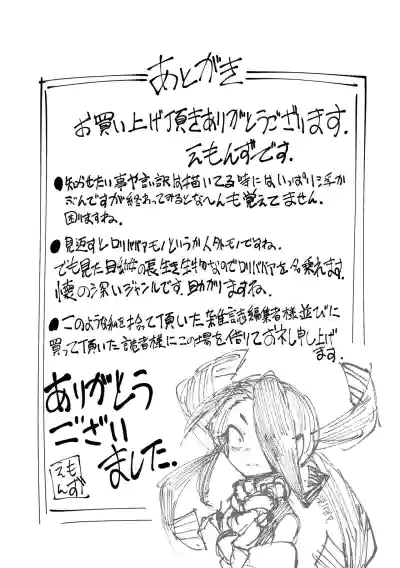 あとがき
お買い上げ頂きありがとうございます.
えもんずです.
●知らせたい事や言い訳は描いてる時にはいっぱい浮か
ぶんですが終わってみるとなーんも覚えてません.
困りますね.
●見返すとロリババアモノというか人外モノですね.
でも見た目幼な長生き生物なのでロリババアを名乗れます
懐の深いジャンルです.助かりますね.
●このような私を拾って頂いた雑誌編集者様並びに
買って頂いた読者様にこの場を借りてお礼申し上げ
ます.
ありがとう
ござい
ました.
えも
んず